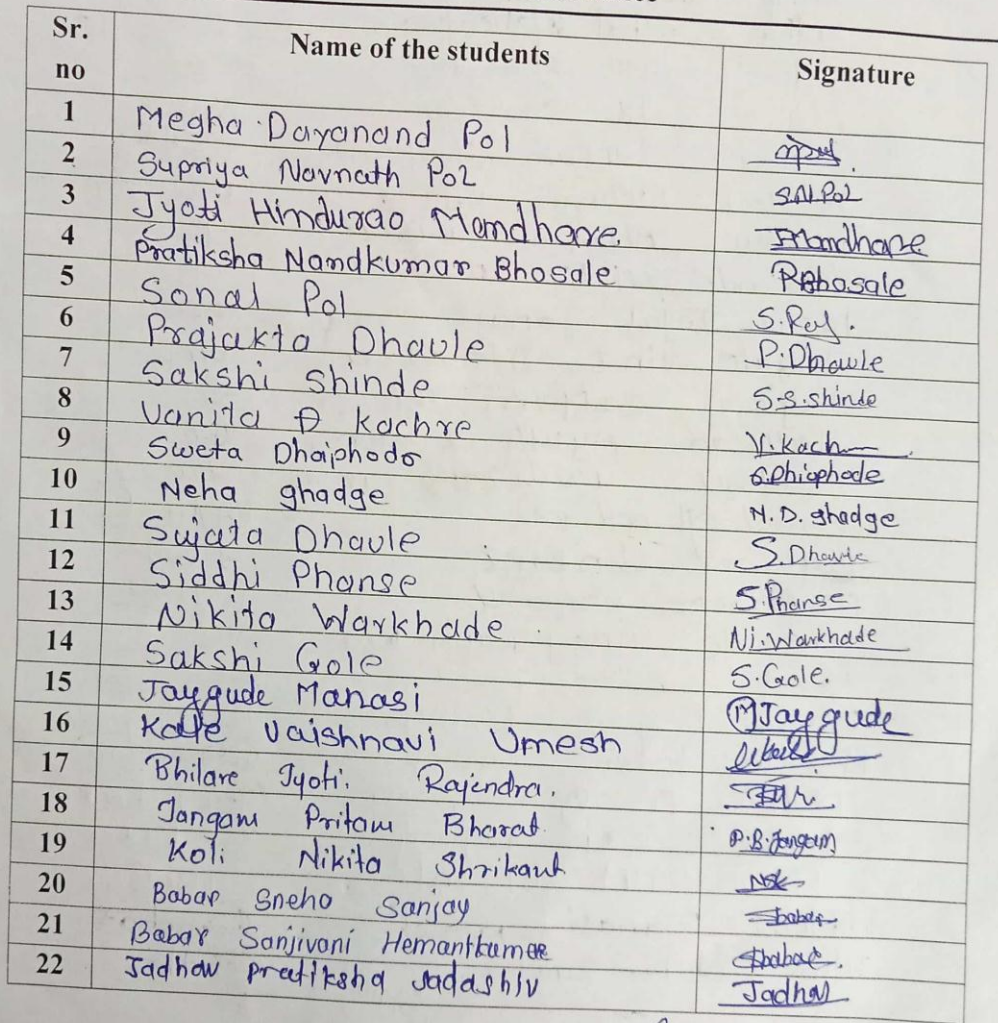 Sr. no Name of the students Signature
1 Megha Dayanand Pol
2 Supriya Navnath Pol S.N.Pol
3 Jyoti Hindurao Mamdhare. JMamdhare
4 Pratiksha Nandkumar Bhosale PBhosale
5 Sonal Pol S.Pol.
6 Prajakta Dhavle P.Dhavle
7 Sakshi Shinde S.S.shinde
8 Vanita D Kachre V.Kach
9 Sweta Dhaiphode S.Dhiaphode
10 Neha ghadge N.D.ghadge
11 Sujata Dhavle S.Dhavle
12 Siddhi Phanse S.Phanse
13 Nikita Warkhade Ni.Warkhade
14 Sakshi Gole S.Gole.
15 Jaygude Manasi MJaygude
16 Kale Vaishnavi Umesh
17 Bhilare Jyoti. Rajendra.
18 Jangam Pritam Bharat P.B.Jangam
19 Koli Nikita Shrikant
20 Babar Sneha Sanjay Sbabar
21 Babar Sanjivani Hemantkumar Sbabar.
22 Jadhav Pratiksha Sadashiv Jadhav